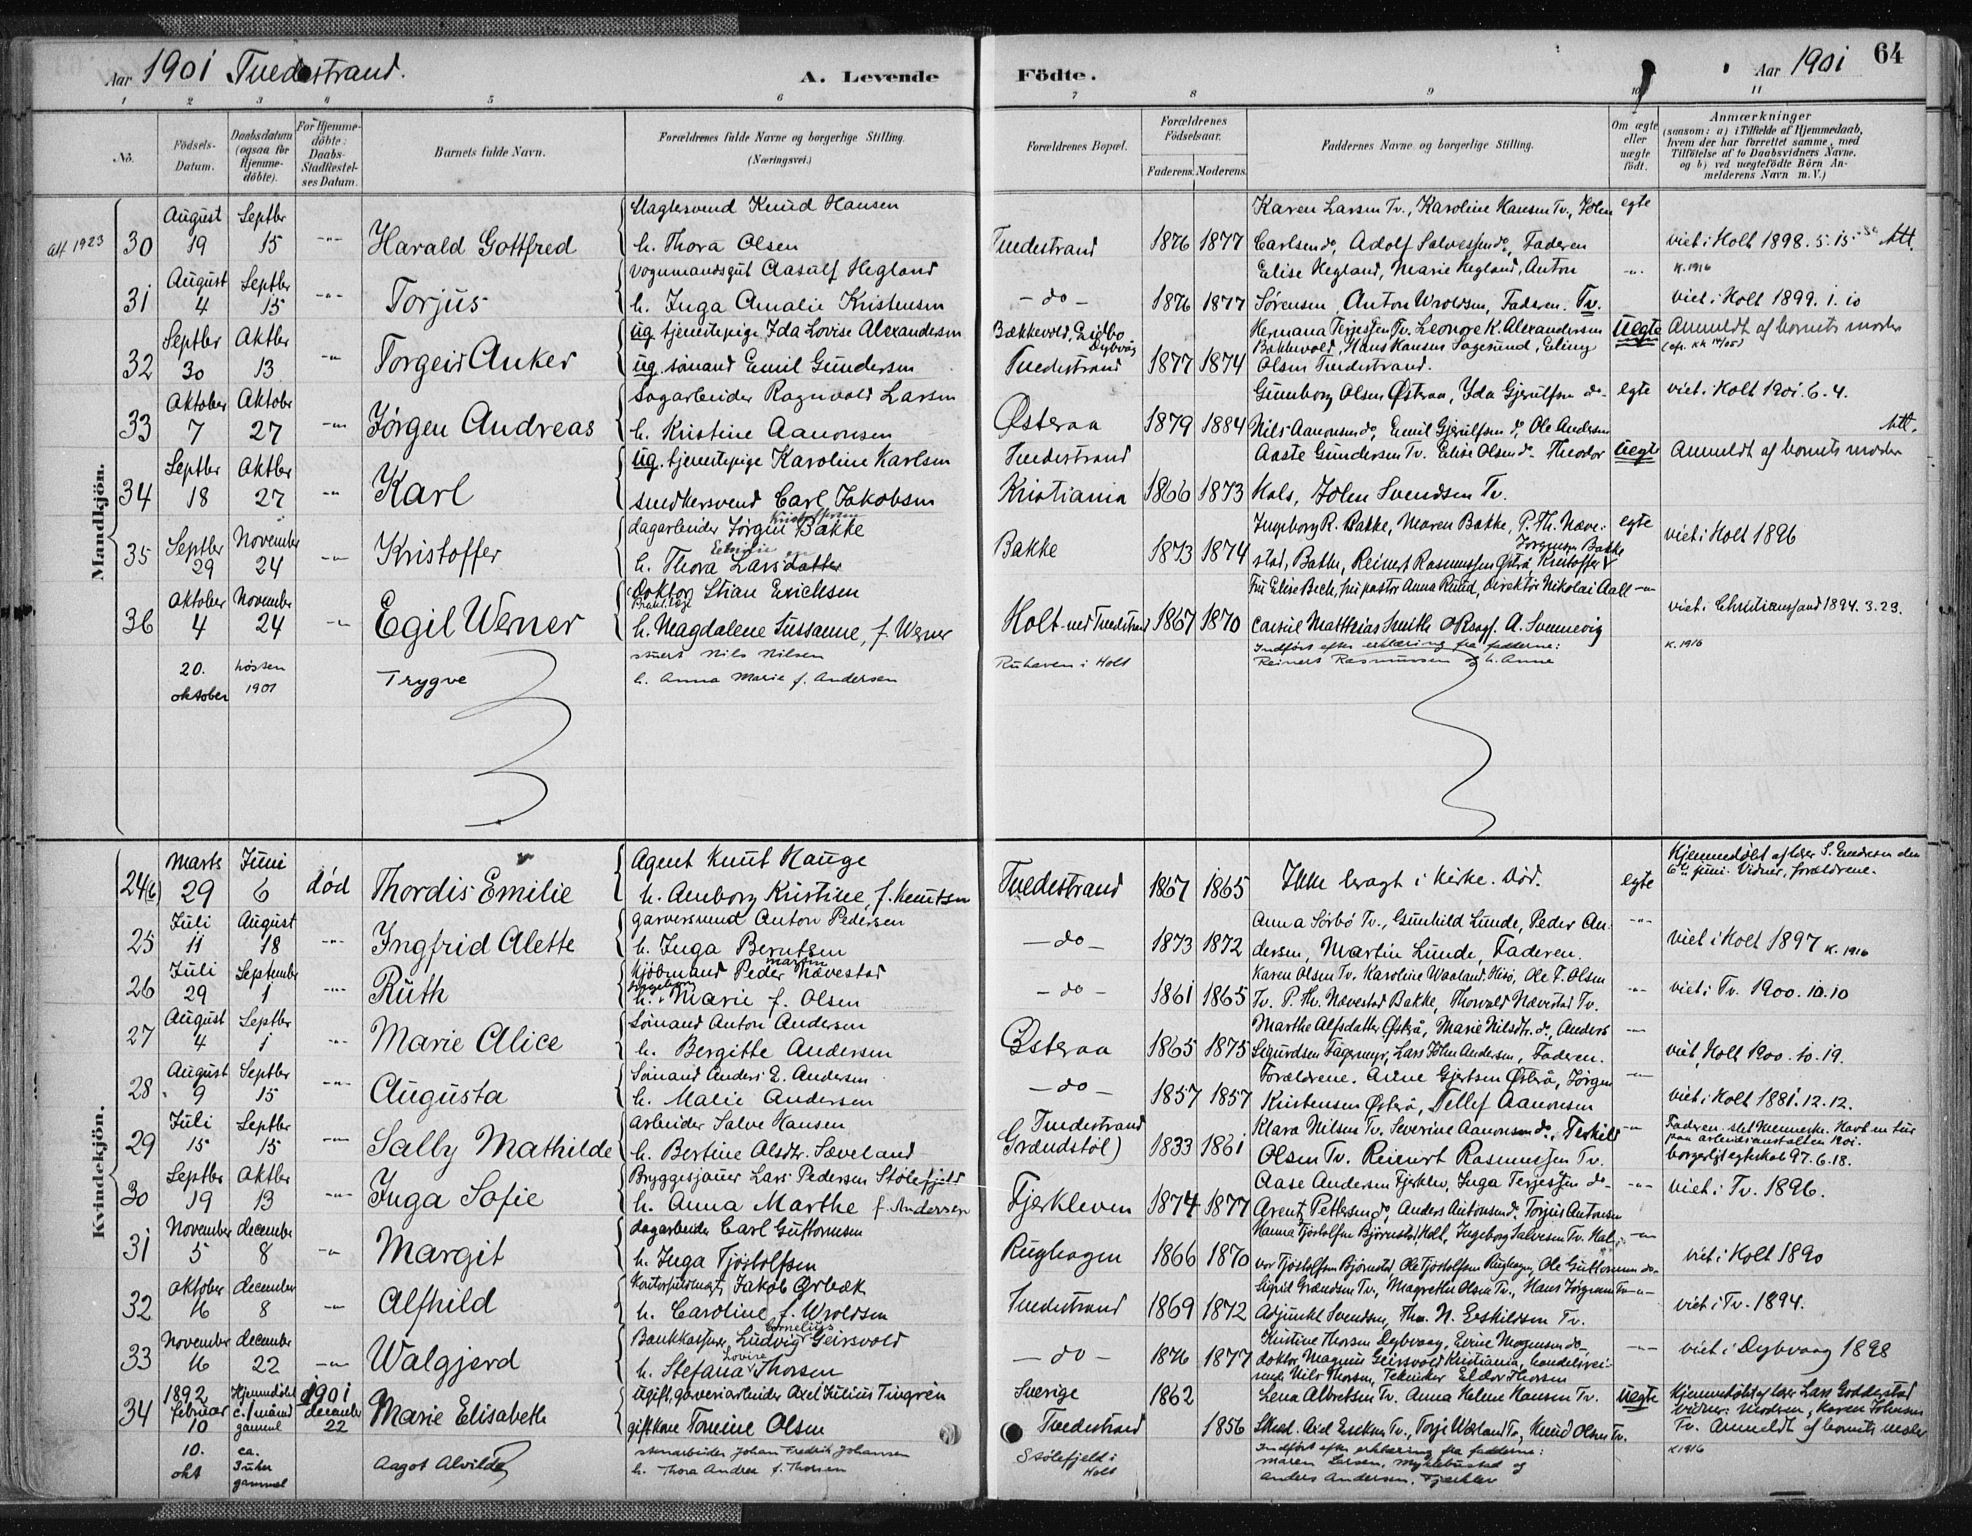 Aar 1901 Tvedestrand. A. Levende Födte. Aar 1901 64
1 2 3 6 5 6 7 8 9 10 11
No. Födsels-Datum. Daabsdatum (ogsaa for Hjemme-döbte). For Hjemme-döbte: Daabs-Stadfæstel-ses Datum. Barnets fulde Navn. Forældrenes fulde Navne og borgerlige Stilling. (Næringsvei.) Forældrenes Bopæl. Forældrenes Födselsaar. Faderens. Moderens. Faddernes Navne og borgerlige Stilling. Om ægte eller uægte födt. Anmærkninger (saasom: a) i Tilfælde af Hjemmedaab, hvem der har forrettet samme, med Tilföielse af to Daabsvidners Navne, og b) ved uægtefödte Börn An-melderens Navn m. V.)
Mandkjön.
att 1923
August Septbr Slagtersvend Knud Hansen Karen Larsen Tv., Karoline Hansen Tv., John egte
30 19 15 -"- Harald Gottfred h. Thora Olsen Tvedestrand 1876 1877 Carlsen do, Adolf Salvessen do, Faderen viet i Holt 1898.5.15 Att.
August Septbr Vognmandsgut Aasulf Hegland Elise Hegland, Marie Hegland, Anton -"- K. 1916
31 4 15 -"- Torjus h. Inga Amalie Kristensen - do - 1876 1877 Sørensen Anton Wroldsen, Faderen. Tv. viet i Holt 1899.1.10
Septbr Oktbr ug. tjenestepige Ida Lovise Alexandersen Bækkevold, Eidbo Dybvåg Hermana Terjessen Tv. Leonore K. Alexandersen uegte Anmeldt af barnets moder
32 30 13 -"- Torgeir Anker ug. sømand Emil Gundersen Tvedestrand 1877 1874 Bakkevold, Hans Hansen Sagesund, Erling Olsen Tvedestrand.
Oktober Oktobr Sagarbeider Ragnvald Larsen Gunborg Olsen Østeraa, Ida Gjerulfsen do egte viet i Holt 1901.6.4.
33 7 27 -"- Jørgen Andreas h. Kristine Aanonsen Østeraa 1879 1884 Nils Aanonsen do, Emil Gjerulfsen do, Ole Andersen Att.
Septbr Oktbr ug. tjenestepige Karoline Karlsen Tvedestrand Aaste Gundersen Tv. Elise Olsen do. Theodor uegte Anmeldt af barnets moder
34 18 27 -"- Karl smedkersvend Carl Jakobsen Kristiania 1866 1873 Hals, John Svendsen Tv.
Septbr November dagarbeider Jørgen Kristoffersen Bakke Ingeborg R. Bakke, Maren Bakke, P. Th. Næve- egte viet i Holt 1896
35 29 24 -"- Kristoffer h. Thora Emilie Larsdatter Bakke 1873 1874 stad, Bakke, Reinert Rasmussen Østrå, Kristoffer Jørgensen Bakke
Oktober November Doktor Stian Erichsen Fru Elise Bech, fru pastor Anna Ruud, direktør Nikolai Aall -"- viet i Christianssand 1894.3.23.
36 4 24 -"- Egil Werner h. Magdalene Sussanne, f. Werner Holt ved Tvedestrand 1867 1870 consul Matthias Smith O.Rsagf. A. Svennevig
20. høsten stuert Nils Nilsen Indført efter erklæring fra fadderne: K. 1916
oktober 1901 Trygve h. Anna Marie f. Andersen Ruhaven i Holt Reinert Rasmussen og h. Anne
Kvindekjön.
Marts Juni Agent Knut Hauge Hjemmedøbt af lærer S. Emdresen den
24(6) 29 6 død Thordis Emilie h. Amborg Kristine, f. Knutsen Tvedestrand 1867 1865 Ikke bragt i kirke. Død. egte 6te juni. Vidner, forældrene.
Juli August garversvend Anton Pedersen Anna Sørbø Tv., Gunhild Lunde, Peder An- -"-
25 11 18 -"- Ingfrid Alette h. Inga Berntsen - do - 1873 1872 dersen, Martin Lunde, Faderen. viet i Holt 1897 K. 1916
Juli September Kjöbmand Peder Martin Nævestad Karen Olsen Tv. Karoline Waaland Hisö, Ole F. Olsen
26 29 1 -"- Ruth h. Ingeborg Marie f. Olsen - do - 1861 1865 Tv. P. Th. Nævestad Bakke, Thorvald Nævestad Tv. -"- viet i Tv. 1900.10.10
August Septbr Sömand Anton Andersen Marthe Alfsdatter Østrå, Marie Nilsdtr. do, Anders -"-
27 4 1 -"- Marie Alice h. Bergitte Andersen Østeraa 1865 1875 Sigurdsen Fagermyr, Lars John Andersen, Faderen. viet, Holt 1900.10.19.
August Septbr Sömand Anders E. Andersen Forældrene. Anne Gjertsen Østrå, Jørgen -"-
28 9 15 -"- Augusta h. Malie Andersen - do - 1857 1857 Kristensen Østrå, Tellef Aanonsen viet i Holt 1881.12.12.
Juli Septbr arbeider Salve Hansen Tvedestrand Klara Nilsen Tv. Severine Aanonsen do, Teskild -"- Faderen slet menneske. Havt en tur paa arbeidsanstalten 1901.
29 15 15 -"- Sally Mathilde h. Bertine Alsdtr. Sæveland Grændstöl) 1833 1861 Olsen Tv. Reinert Rasmussen Tv. borgerligt egteskab 97.6.18.
Septbr Oktbr Bryggesjauer Lars Pedersen Stölefjeld Aase Andersen Fjerklev, Inga Terjessen do- -"- viet i Tv. 1896.
30 19 13 -"- Inga Sofie h. Anna Marthe f. Andersen Fjerkleven 1874 1877 Arent Pettersen do, Anders Antonsen do. Torjus Antonsen
November december dagarbeider Carl Guttormsen Hanna Tjöstolfsen Björnstad Holt, Ingeborg Salvesen Tv. Hal- -"-
31 5 8 -"- Margit h. Inga Tjöstolfsen Rughagen 1866 1870 vor Tjöstolfsen Björnstad Ole Tjöstolfsen Rughagen, Ole Guttormsen do- viet i Holt 1890
Oktober december Kontorfuldmægt. Jakob Ørbæk Sigrid Grændsen Tv., Magrethe Olsen Tv., Hans Jörgensen Tv -"-
32 16 8 -"- Alfhild h. Caroline f. Wroldsen Tvedestrand 1869 1872 Adjunkt Svendsen, Tho. N. Eskildsen Tv. viet i Tv. 1894.
November december Bankkasserer Ludvig Cornelius Geirsvold Kristine Thorsen Dybvaag, Evine Mogensen do-
33 16 22 -"- Walgjerd h. Stefana Lovise Thorsen - do - 1876 1877 doktor Magnus Geirsvold Kristiania, handelsrei-sende Nils Thorsen, Tekniker Eldor Thorsen -"- viet i Dybvaag 1898
1892 Hjemmedøbt 1901 Ugift, garveriarbeider Axel Julius Tingrén Sverige 1862 Lena Albretsen Tv. Anna Helene Hansen Tv. uegte Hjemmedøbt af lærer Lars Goderstad
34 februar 10 c. 1 maand gammel december 22 Marie Elisabeth gift kone Tomine Olsen Tvedestrand 1856 Skred. Axel Eriksen Tv., Torje Waaland Tv, Knud Olsen Tv. vidner: modren, Karen Johnsen Tv. Anmeldt af barnets moder
10. ca. stenarbeider Johan Fredrik Johansen Stölefjeld i Indført efter erklæring fra fadderne: K 1916
okt 3 uker gammel Aagot Alvilde h. Thora Andrea f. Thorsen Holt Maren Larsen, Myklebustad og
Anders Andersen, Fjærklev